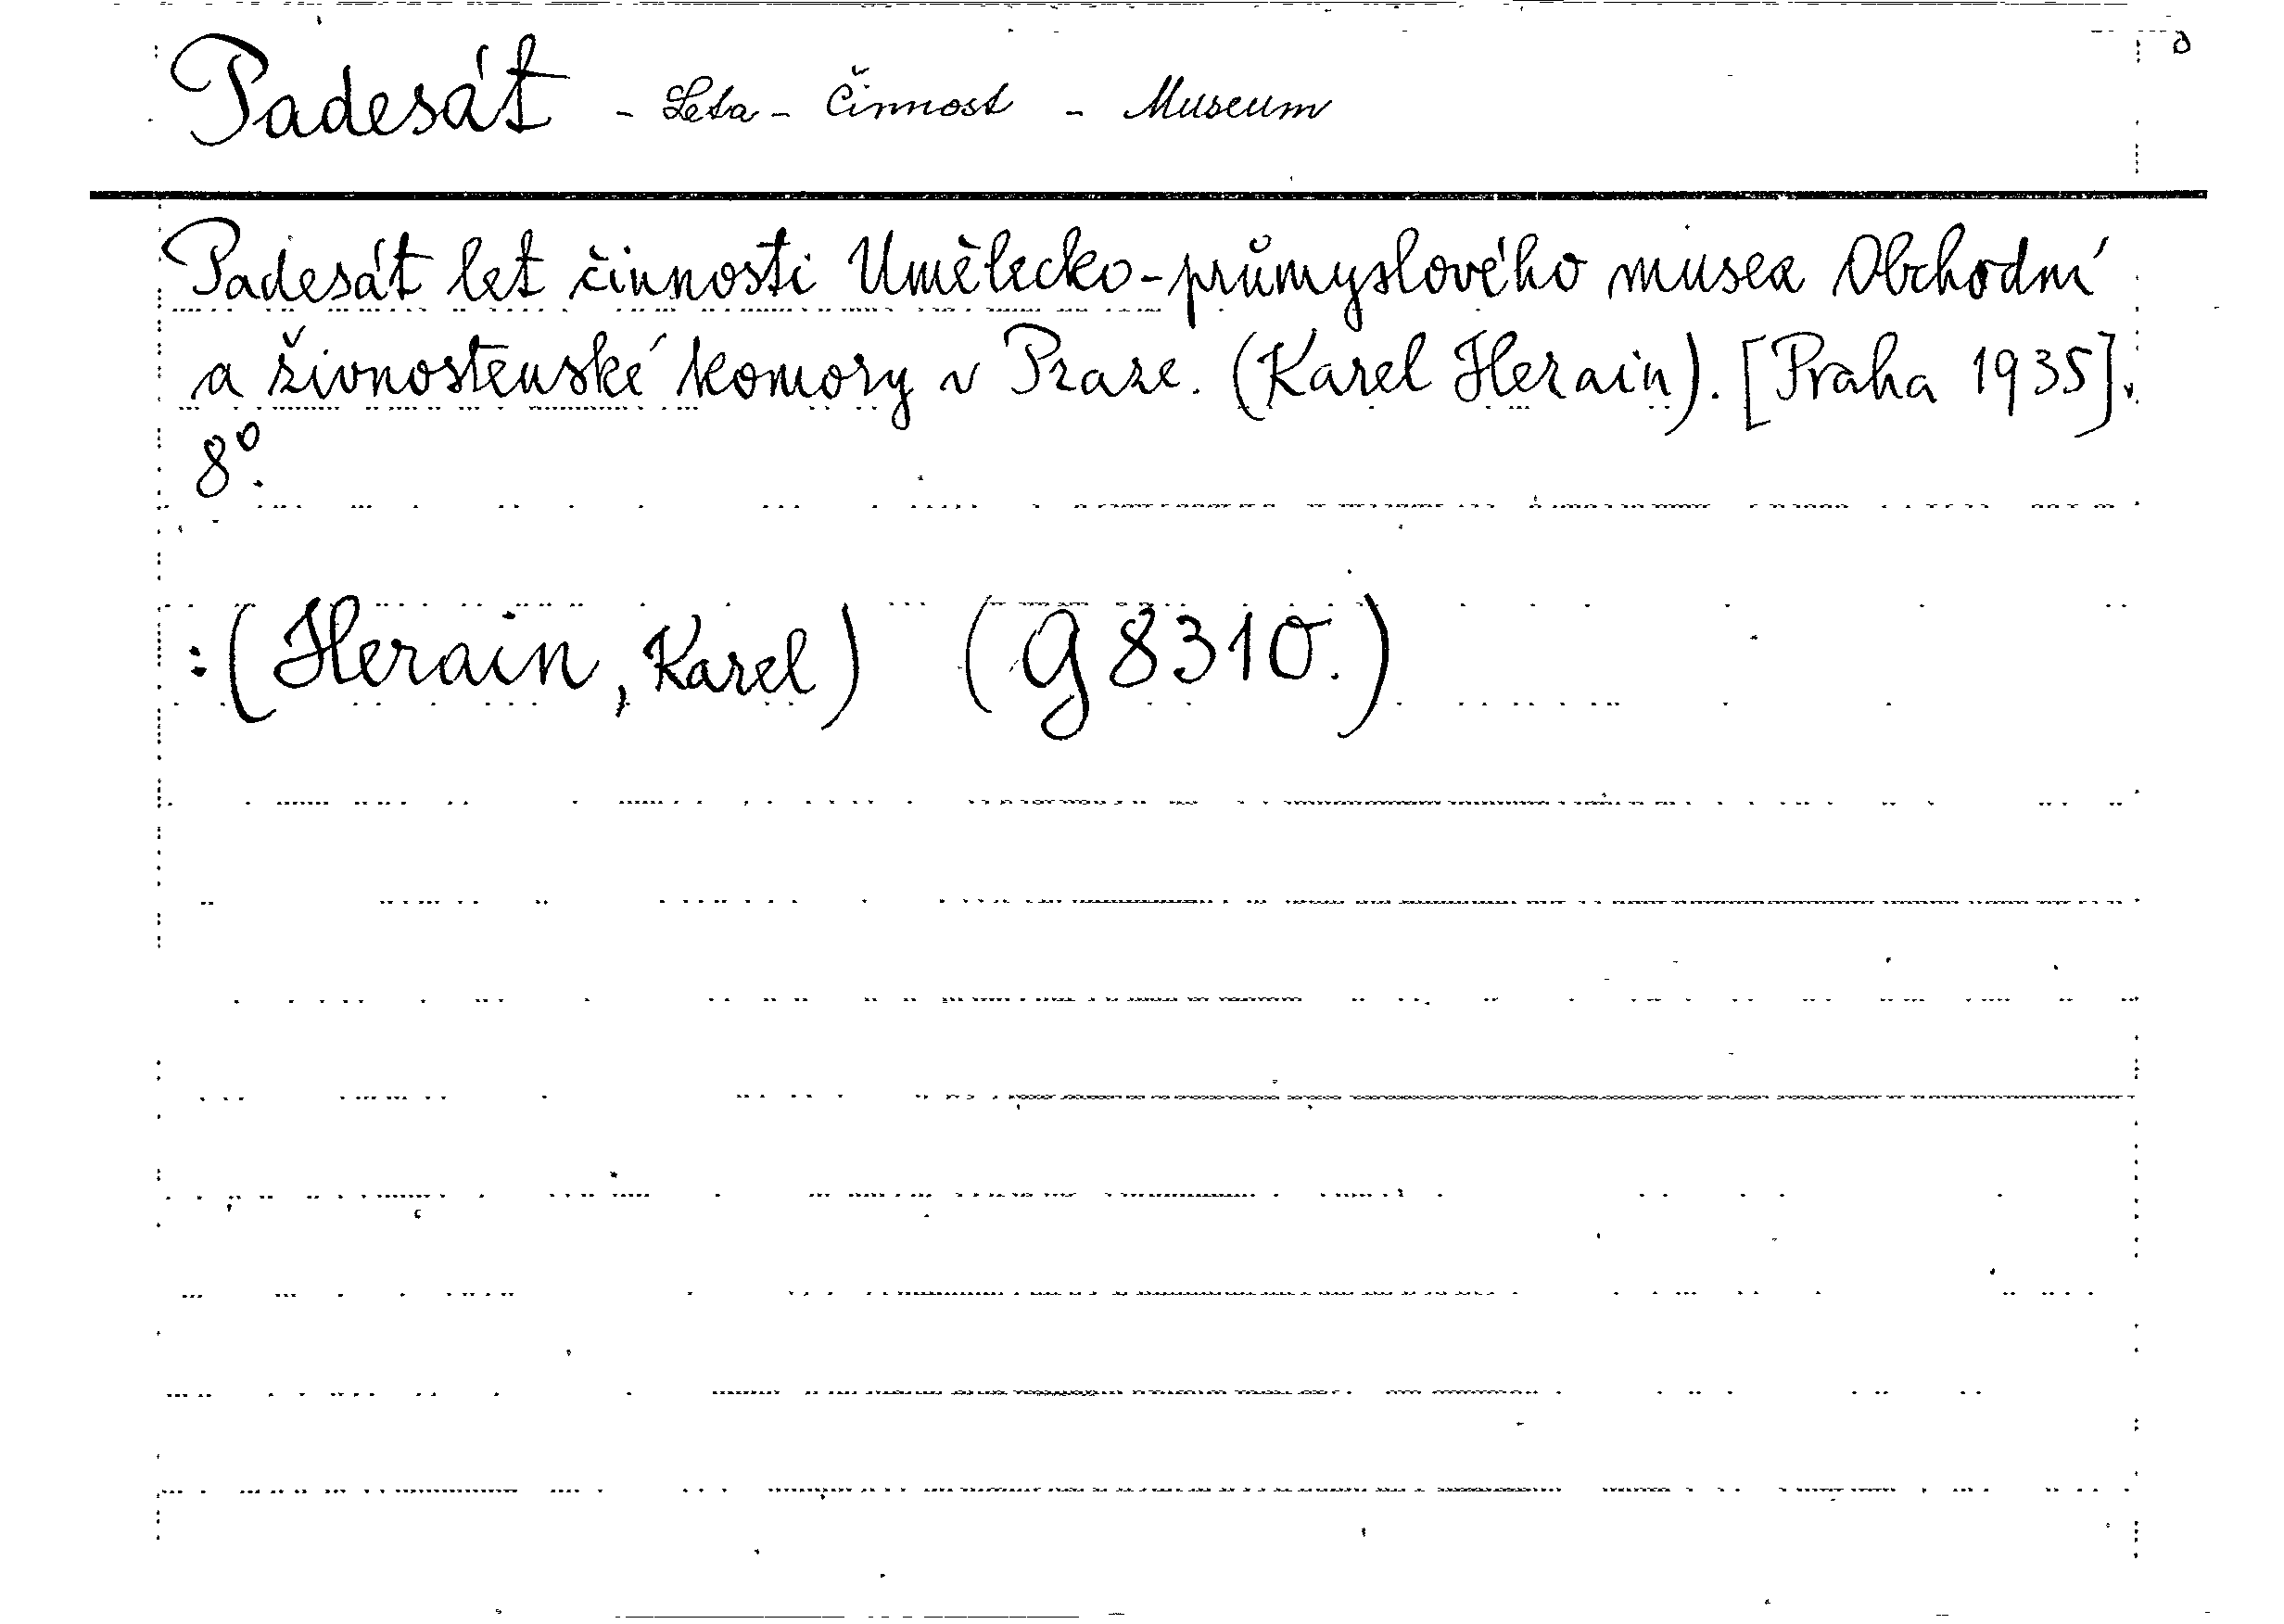 Padesát - Leta - Činnost - Museum
Padesát let činnosti Umělecko-průmyslového musea Obchodní
a živnostenské komory v Praze. (Karel Herain). [Praha 1935].
8°.
:(Herain, Karel) (G 8310.)